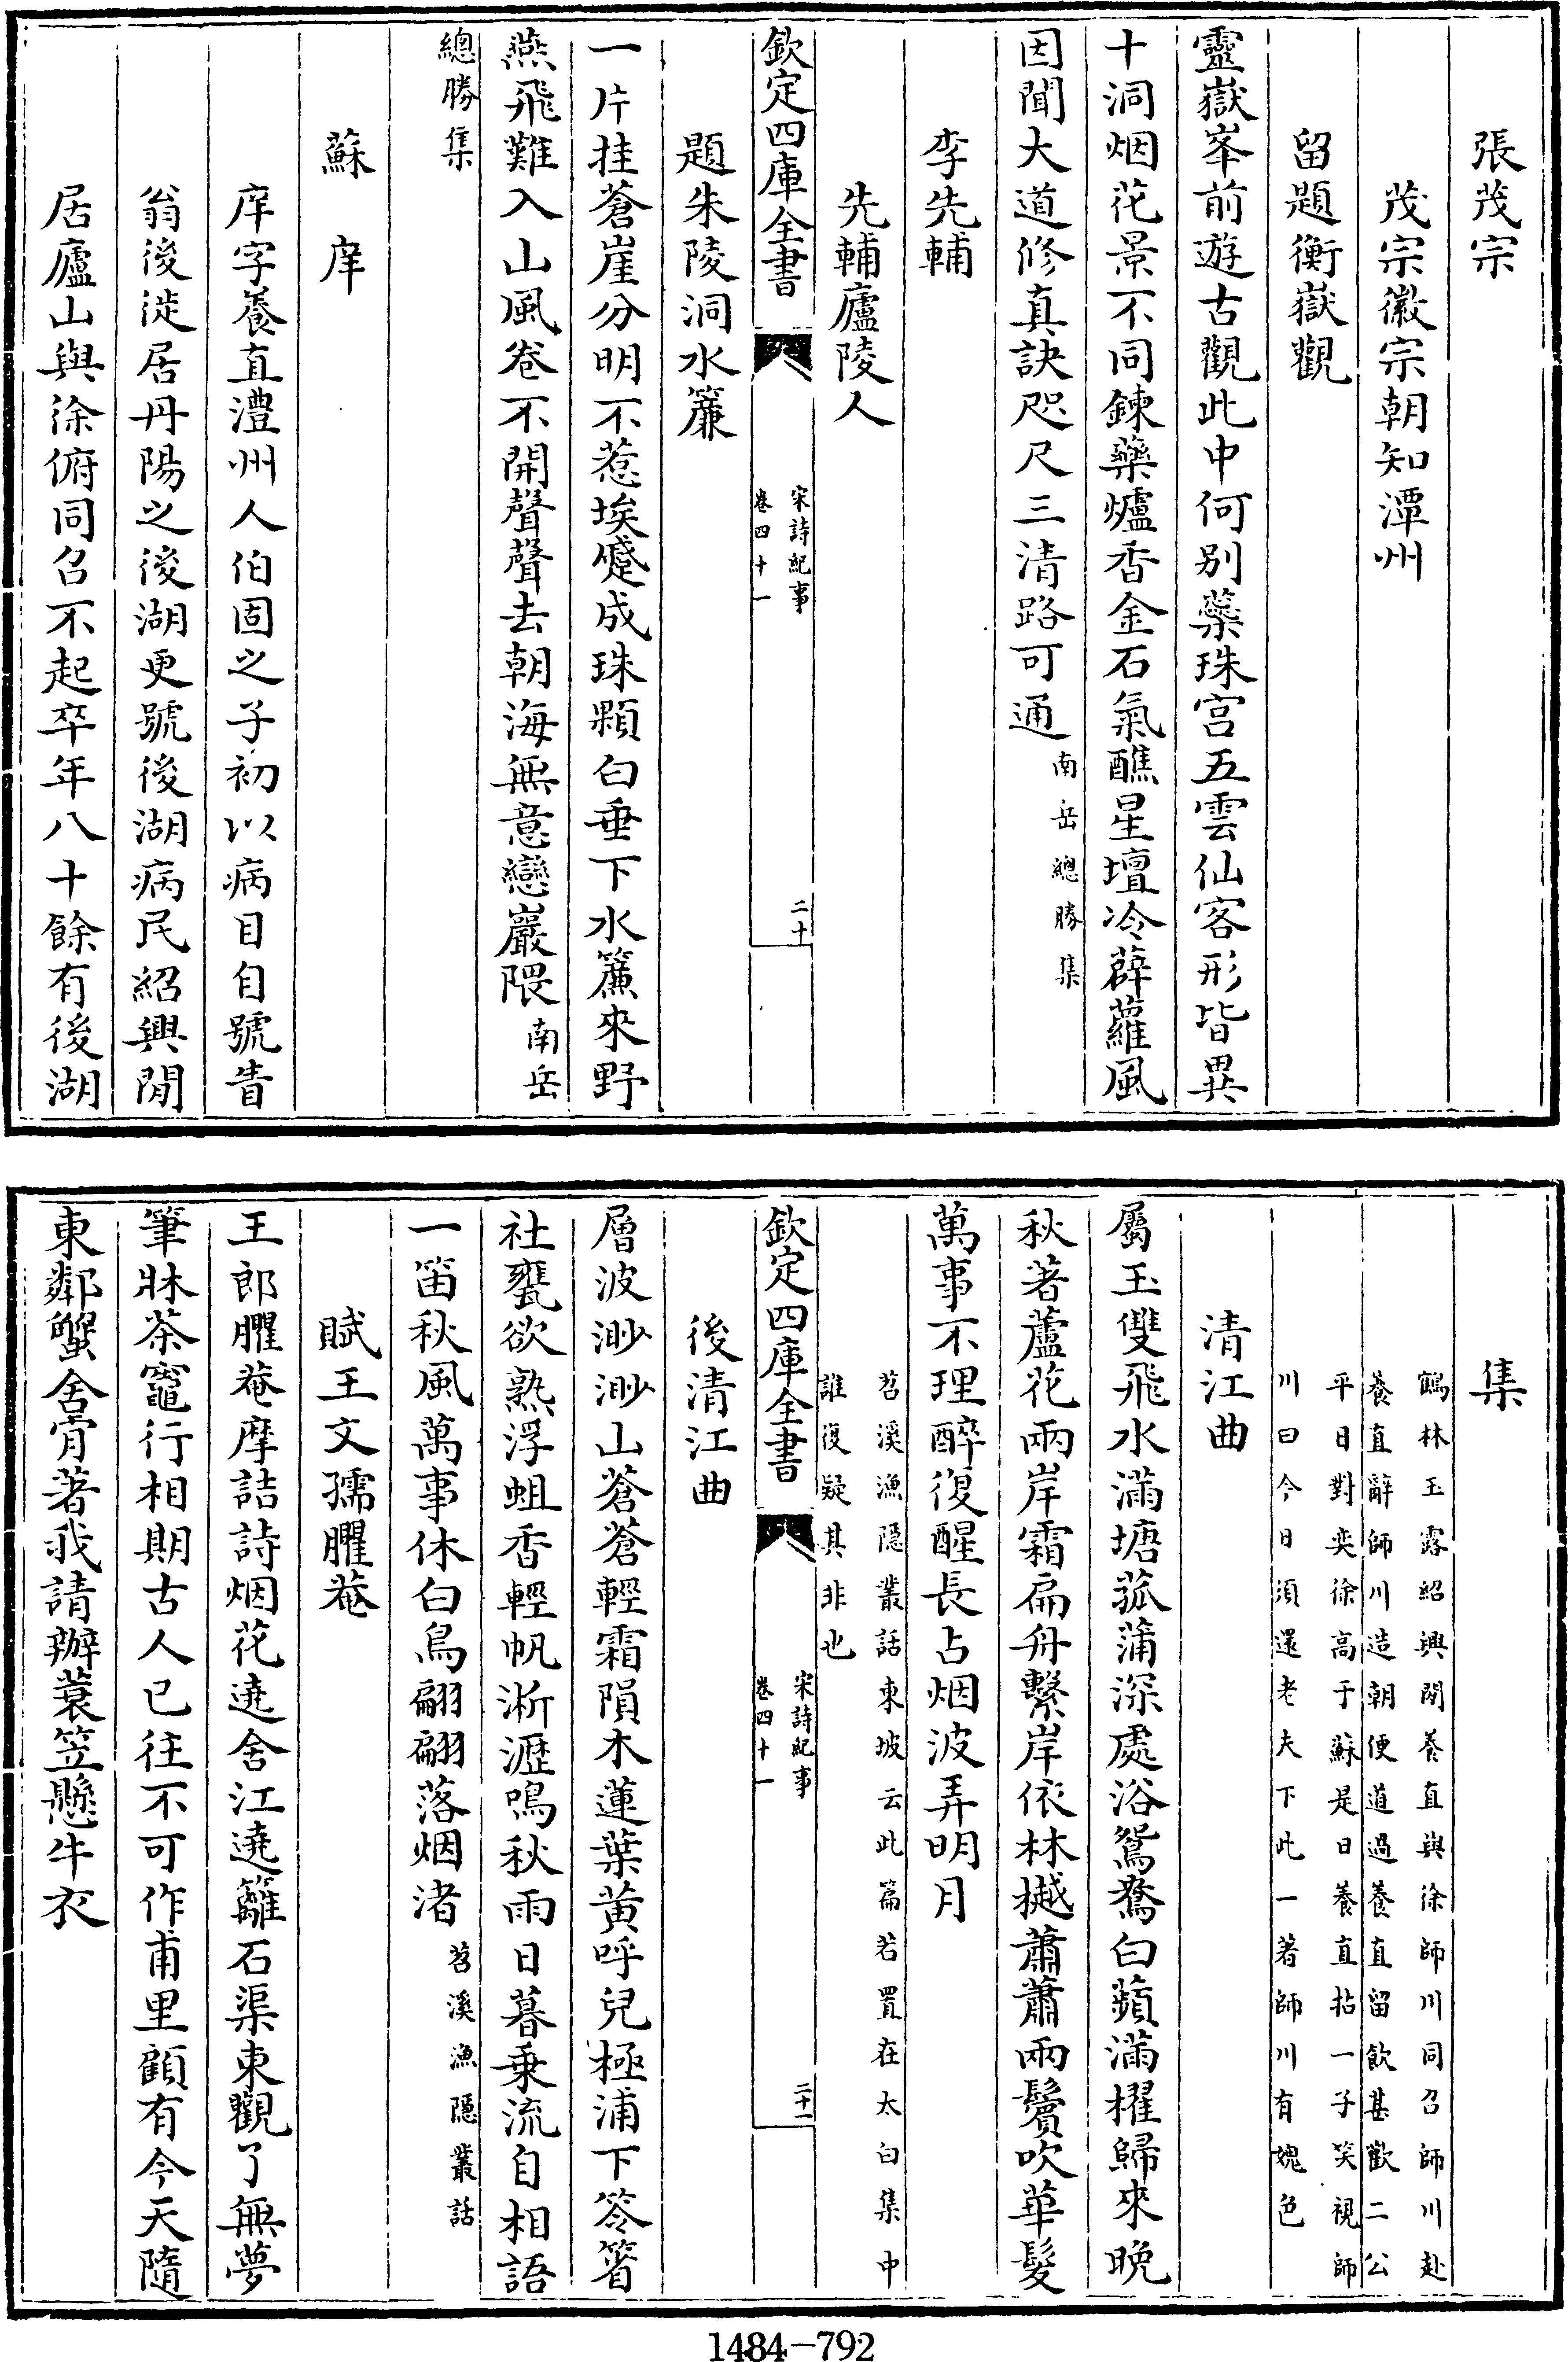 張茂宗
茂宗徽宗朝知潭州
留題衡嶽觀
靈嶽峯前遊古觀此中何别蘂珠宫五雲仙客形皆異
十洞烟花景不同鍊藥爐香金石氣醮星壇冷薜蘿風
因聞大道修真訣咫尺三清路可通南岳總勝集
李先輔
先輔廬陵人
欽定四庫全書
宋詩紀事
卷四十一
二十
題朱陵洞水簾
一片挂蒼崖分明不惹埃蹙成珠顆白垂下水簾來野
燕飛難入山風卷不開聲聲去朝海無意戀巖隈南岳
總勝集
蘇庠
庠字養直澧州人伯固之子初以病目自號眚
翁後徙居丹陽之後湖更號後湖病民紹興間
居廬山與徐俯同召不起卒年八十餘有後湖
集
鶴林玉露紹興間養直與徐師川同召師川赴
養直辭師川造朝便道過養直留飲甚歡二公
平日對奕徐高于蘇是日養直拈一子笑視師
川曰今日須還老夫下此一著師川有媿色
清江曲
屬玉雙飛水滿塘菰蒲深處浴鴛鴦白蘋滿櫂歸來晚
秋著蘆花兩岸霜扁舟繫岸依林樾蕭蕭兩鬢吹華髮
萬事不理醉復醒長占烟波弄明月
苕溪漁隱叢話東坡云此篇若置在太白集中
誰復疑其非也
欽定四庫全書
宋詩紀事
卷四十一
二十一
後清江曲
層波渺渺山蒼蒼輕霜隕木蓮葉黄呼兒極浦下笭箵
社甕欲熟浮蛆香輕帆淅瀝鳴秋雨日暮乗流自相語
一笛秋風萬事休白鳥翩翩落烟渚苕溪漁隱叢話
賦王文孺臞菴
王郎臞菴摩詰詩烟花遶舍江遶籬石渠東觀了無夢
筆牀茶竈行相期古人已往不可作甫里顧有今天隨
東鄰蟹舍肯著我請辦蓑笠懸牛衣
1484-792